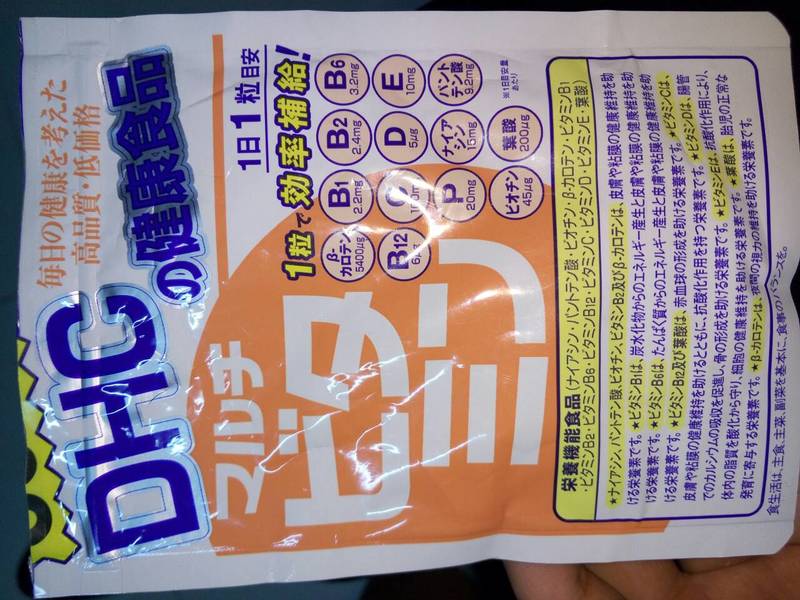 毎日の健康を考えた
高品質・低価格
DHC
の健康食品
1日1粒目安
1粒で効率補給!
β-カロテン 5400μg
B1 2.2mg
B2 2.4mg
B6 3.2mg
B12
C
D 5μg
E 10mg
P 20mg
ナイアシン 15mg
パントテン酸 9.2mg
ビオチン 45μg
葉酸 200μg
※1日目安量あたり
マルチ
ビタミン
栄養機能食品(ナイアシン・パントテン酸・ビオチン・β-カロテン・ビタミンB1
・ビタミンB2・ビタミンB6・ビタミンB12・ビタミンC・ビタミンD・ビタミンE・葉酸)
★ナイアシン、パントテン酸、ビオチン、ビタミンB2及びβ-カロテンは、皮膚や粘膜の健康維持を助
ける栄養素です。★ビタミンB1は、炭水化物からのエネルギー産生と皮膚や粘膜の健康維持を助
ける栄養素です。★ビタミンB6は、たんぱく質からのエネルギー産生と皮膚や粘膜の健康維持を助
ける栄養素です。★ビタミンB12及び葉酸は、赤血球の形成を助ける栄養素です。★ビタミンCは、
皮膚や粘膜の健康維持を助けるとともに、抗酸化作用を持つ栄養素です。★ビタミンDは、腸管
でのカルシウムの吸収を促進し、骨の形成を助ける栄養素です。★ビタミンEは、抗酸化作用により、
体内の脂質を酸化から守り、細胞の健康維持を助ける栄養素です。★葉酸は、胎児の正常な
発育に寄与する栄養素です。★β-カロテンは、夜間の視力の維持を助ける栄養素です。
食生活は、主食、主菜、副菜を基本に、食事のバランスを。